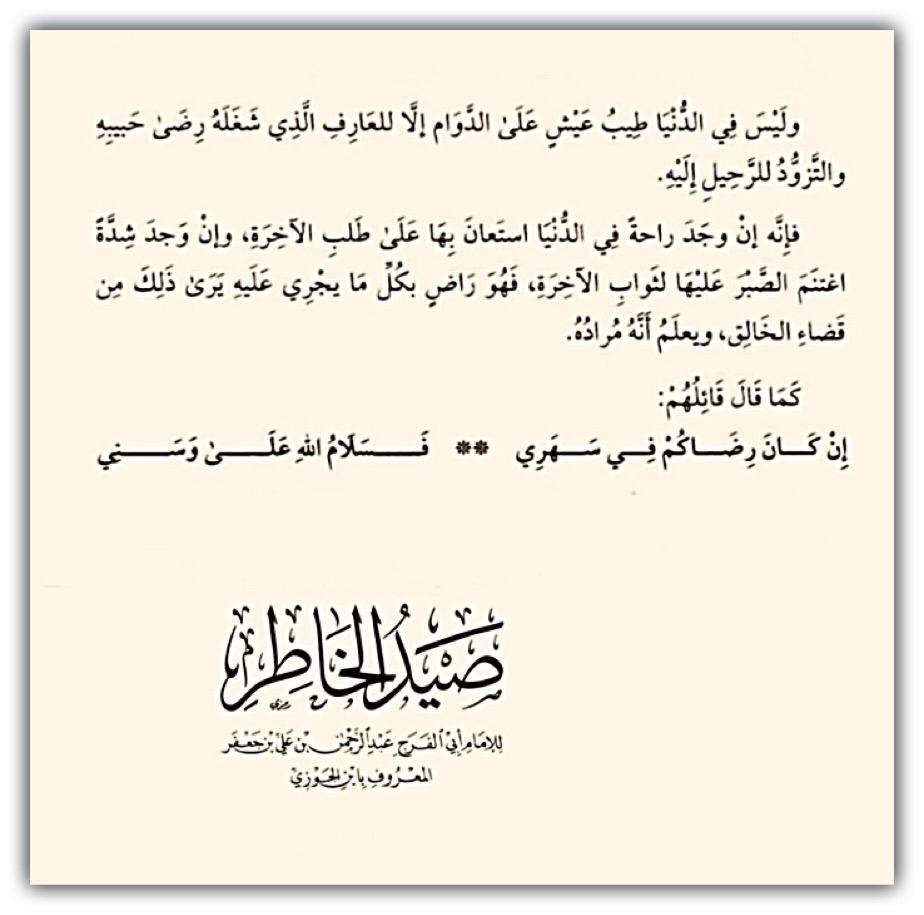 ولَيْسَ فِي الدُّنْيَا طِيبُ عَيْشٍ عَلَىٰ الدَّوَام إلَّا للعَارِفِ الَّذِي شَغَلَهُ رِضَىٰ حَبيبِهِ
والتَّزوُّدُ للرَّحِيلِ إِلَيْهِ.
فإنَّه إنْ وجَدَ راحةً فِي الدُّنْيَا استَعانَ بِهَا عَلَىٰ طَلبِ الآخِرَةِ، وإنْ وَجدَ شِدَّةً
اغتنَمَ الصَّبْرَ عَليْهَا لثَوابِ الآخِرَةِ، فَهُوَ رَاضٍ بكُلِّ مَا يجْرِي عَلَيهِ يَرَىٰ ذَلِكَ مِن
قَضاءِ الخَالِق، ويعلَمُ أَنَّهُ مُرادُهُ.
كَمَا قَالَ قَائِلُهُمْ:
إنْ كَـانَ رِضَـاكُمْ فِـي سَـهَرِي ** فَـسَلَامُ اللهِ عَلَـىٰ وَسَـنِي
صَيْدُ الخَاطِر
للإمَام أبي الفَرَج عَبْدِ الرَّحْمٰن بْن عَلي بْن جَعْفَر
المعْرُوفِ بِابْنِ الجَوْزِيّ